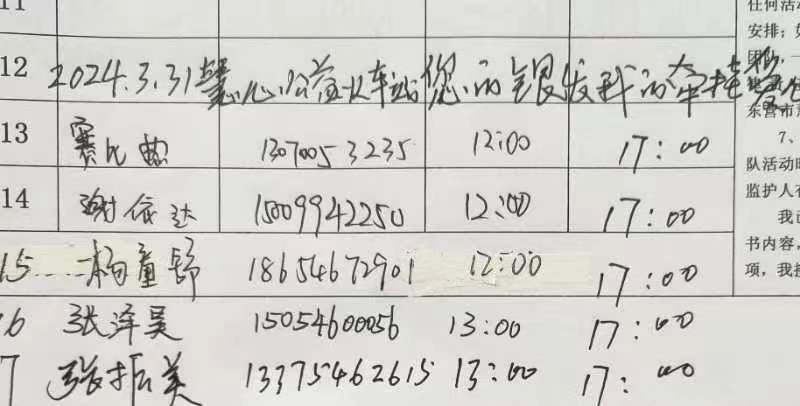 11
任何活动
安排；如
12 2024.3.31慧心公益火车站您的银发我的牵挂
东营市
13 赛比热 13070053235 12:00 17:00
7、
队活动时
14 谢依达 15009942250 12:00 17:00
监护人在
我已
15 杨童舒 18654672901 12:00 17:00
书内容，
项，我
16 张泽昊 15054600056 13:00 17:00
7 张振美 13375462615 13:00 17:00